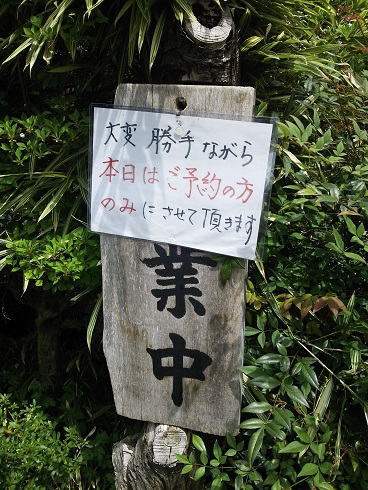 大変勝手ながら
本日はご予約の方
のみにさせて頂きます
業中